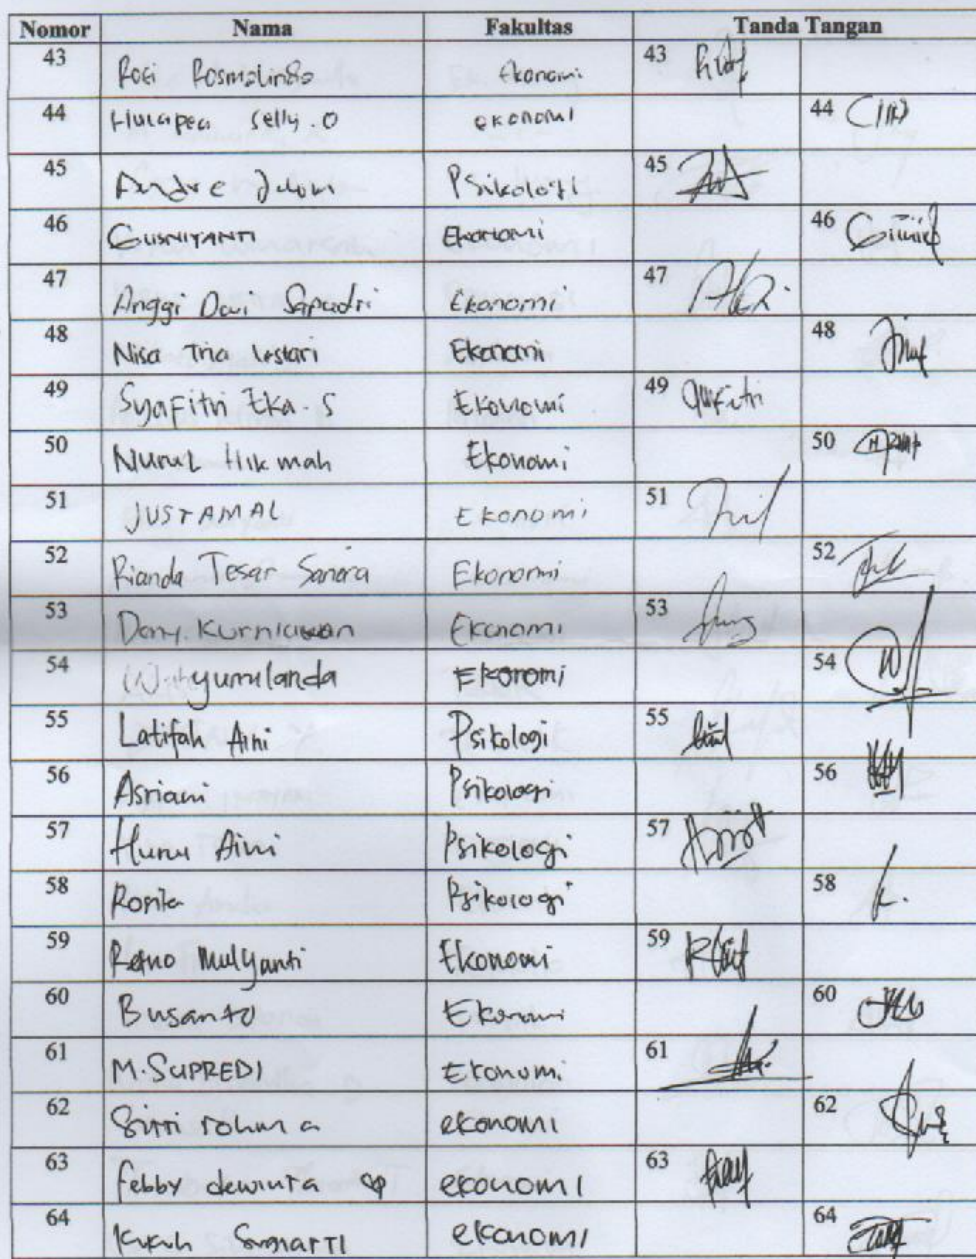 Nomor Nama Fakultas Tanda Tangan
43 Rosi Rosmalinda Ekonomi 43
44 Hutapea Selly .O ekonomi 44
45 Andre Psikologi 45
46 GUSNIYANTI Ekonomi 46
47 Anggi Dwi Saputri Ekonomi 47
48 Nisa Tria Lestari Ekonomi 48
49 Syafitri Eka . S Ekonomi 49
50 Nurul Hikmah Ekonomi 50
51 JUSTAMAL Ekonomi 51
52 Rianda Tesar Sanora Ekonomi 52
53 Dony. Kurniawan Ekonomi 53
54 Wahyumilanda Ekonomi 54
55 Latifah Aini Psikologi 55
56 Asriani Psikologi 56
57 Aini Psikologi 57
58 Rosita Psikologi 58
59 Retno Mulyanti Ekonomi 59
60 Busanto Ekonomi 60
61 M. SUPREDI Ekonomi 61
62 Sitti rohma ekonomi 62
63 Febby dewinta ekonomi 63
64 ekonomi 64